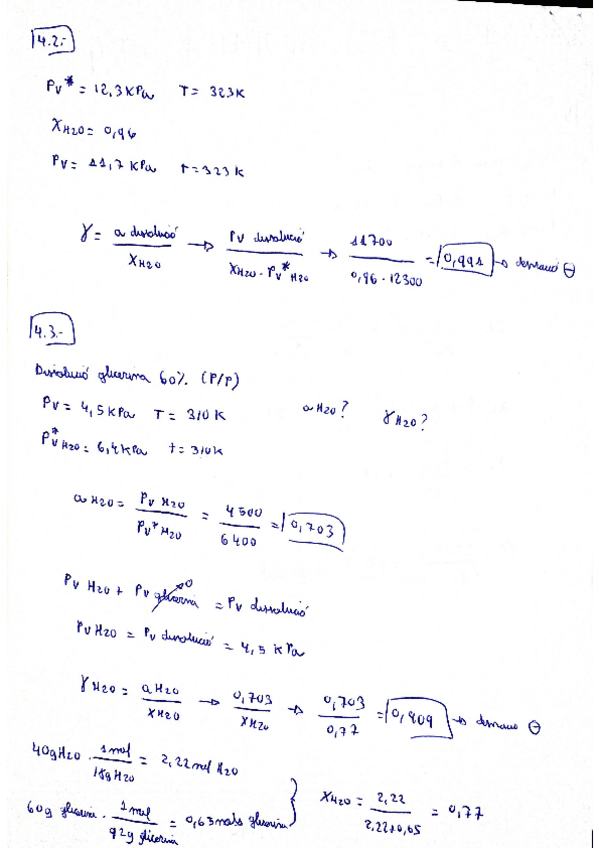 4.2.-
Pv* = 12,3 KPa T = 323K
XH2O = 0,96
Pv = 11,7 KPa T = 323K
γ = a dissolució / XH2O → Pv dissolució / XH2O · Pv* H2O → 11700 / 0,96 · 12300 = 0,991 → desviació ⊖
4.3.-
Dissolució glicerina 60% (P/P)
Pv = 4,5 KPa T = 310K aH2O? γH2O?
Pv* H2O = 6,4 KPa t = 310K
aH2O = Pv H2O / Pv* H2O = 4500 / 6400 = 0,703
Pv H2O + Pv glicerina →0 = Pv dissolució
Pv H2O = Pv dissolució = 4,5 KPa
γH2O = aH2O / XH2O → 0,703 / XH2O → 0,703 / 0,77 = 0,909 → desviació ⊖
40g H2O · 1mol / 18g H2O = 2,22 mol H2O
60g glicerina · 1mol / 92g glicerina = 0,65 mols glicerina } XH2O = 2,22 / 2,22+0,65 = 0,77